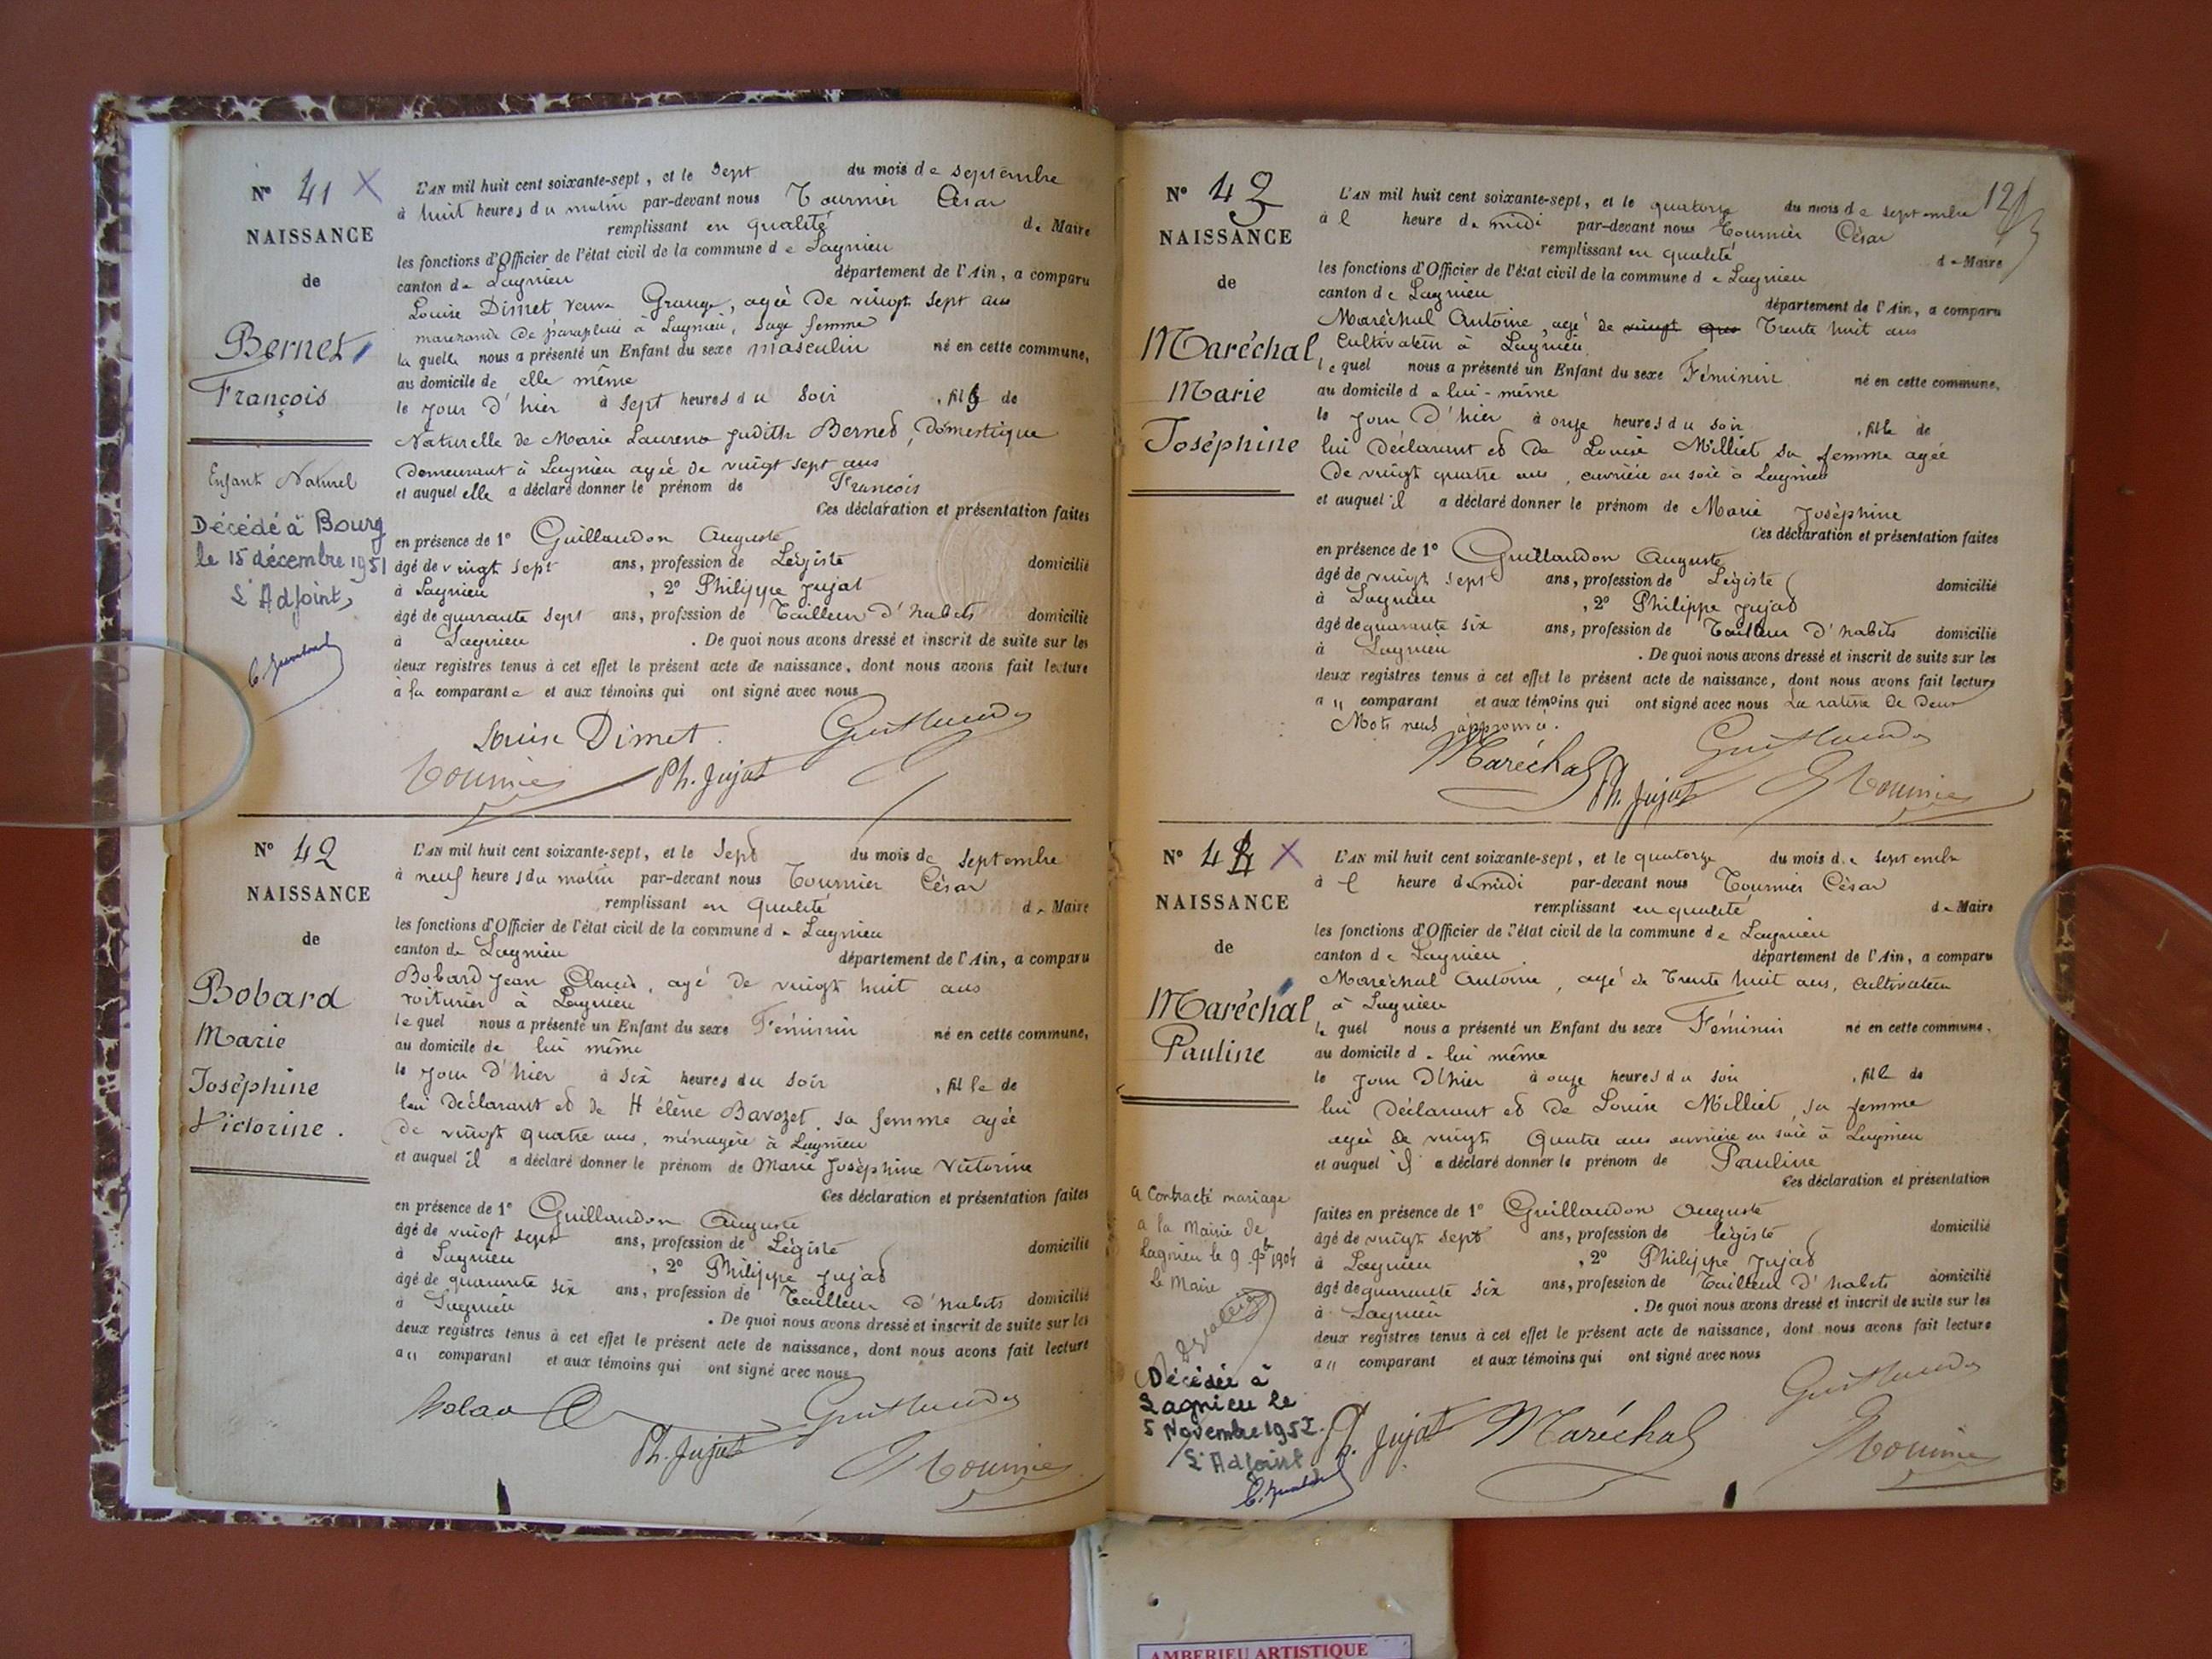 N° 41 X
NAISSANCE
de
Bernet
François
Enfant Naturel
Décédé à Bourg
le 15 décembre 1951
L'Adjoint,
L'AN mil huit cent soixante-sept, et le sept du mois de septembre
à huit heures du matin par-devant nous Tournier César
remplissant en qualité de Maire
les fonctions d'Officier de l'état civil de la commune de Lagnieu
canton de Lagnieu département de l'Ain, a comparu
Louise Dimet veuve Grange, agée de vingt sept ans
marchande de parapluie à Lagnieu, sage femme
la quelle nous a présenté un Enfant du sexe masculin né en cette commune,
au domicile de elle même
le jour d'hier à sept heures du soir , fils de
Naturelle de Marie Laurena Judith Bernet, domestique
demeurant à Lagnieu agée de vingt sept ans
et auquel elle a déclaré donner le prénom de François
Ces déclaration et présentation faites
en présence de 1° Guillaudon Auguste
âgé de vingt sept ans, profession de Légiste domicilié
à Lagnieu , 2° Philippe Jujat
âgé de quarante sept ans, profession de Tailleur d'habits domicilié
à Lagnieu . De quoi nous avons dressé et inscrit de suite sur les
deux registres tenus à cet effet le présent acte de naissance, dont nous avons fait lecture
à la comparante et aux témoins qui ont signé avec nous
Louise Dimet. Guillaudon
Tournier Ph. Jujat
N° 42
NAISSANCE
de
Bobard
Marie
Joséphine
Victorine.
L'AN mil huit cent soixante-sept, et le sept du mois de septembre
à neuf heures du matin par-devant nous Tournier César
remplissant en qualité de Maire
les fonctions d'Officier de l'état civil de la commune de Lagnieu
canton de Lagnieu département de l'Ain, a comparu
Bobard Jean Claude, agé de vingt huit ans
voiturier à Lagnieu
le quel nous a présenté un Enfant du sexe Féminin né en cette commune,
au domicile de lui même
le jour d'hier à six heures du soir , fille de
lui déclarant et de Hélène Bavozet, sa femme agée
de vingt quatre ans, ménagère à Lagnieu
et auquel il a déclaré donner le prénom de Marie Joséphine Victorine
Ces déclaration et présentation faites
en présence de 1° Guillaudon Auguste
âgé de vingt sept ans, profession de Légiste domicilié
à Lagnieu , 2° Philippe Jujat
âgé de quarante six ans, profession de Tailleur d'habits domicilié
à Lagnieu . De quoi nous avons dressé et inscrit de suite sur les
deux registres tenus à cet effet le présent acte de naissance, dont nous avons fait lecture
au comparant et aux témoins qui ont signé avec nous
Guillaudon
Ph. Jujat Tournier
N° 43
NAISSANCE
de
Maréchal
Marie
Joséphine
L'AN mil huit cent soixante-sept, et le quatorze du mois de septembre
à l heure de midi par-devant nous Tournier César
remplissant en qualité de Maire
les fonctions d'Officier de l'état civil de la commune de Lagnieu
canton de Lagnieu département de l'Ain, a comparu
Maréchal Antoine, agé de vingt que Trente huit ans
Cultivateur à Lagnieu
le quel nous a présenté un Enfant du sexe Féminin né en cette commune,
au domicile de lui-même
le jour d'hier à onze heures du soir , fille de
lui déclarant et de Louise Milliet sa femme agée
de vingt quatre ans, ouvrière en soie à Lagnieu
et auquel il a déclaré donner le prénom de Marie Joséphine
Ces déclaration et présentation faites
en présence de 1° Guillaudon Auguste
âgé de vingt sept ans, profession de Légiste domicilié
à Lagnieu , 2° Philippe Jujat
âgé de quarante six ans, profession de Tailleur d'habits domicilié
à Lagnieu . De quoi nous avons dressé et inscrit de suite sur les
deux registres tenus à cet effet le présent acte de naissance, dont nous avons fait lecture
au comparant et aux témoins qui ont signé avec nous La rature de deux
Mots nuls approuvé.
Maréchal Guillaudon
Ph. Jujat Tournier
N° 44 X
NAISSANCE
de
Maréchal
Pauline
a contracté mariage
à la Mairie de
Lagnieu le 9 9bre 1904
Le Maire
Décédée à
Lagnieu le
5 Novembre 1952.
L'Adjoint
L'AN mil huit cent soixante-sept, et le quatorze du mois de septembre
à l heure de midi par-devant nous Tournier César
remplissant en qualité de Maire
les fonctions d'Officier de l'état civil de la commune de Lagnieu
canton de Lagnieu département de l'Ain, a comparu
Maréchal Antoine, agé de Trente huit ans, Cultivateur
à Lagnieu
le quel nous a présenté un Enfant du sexe Féminin né en cette commune,
au domicile de lui même
le jour d'hier à onze heures du soir , fille de
lui déclarant et de Louise Milliet, sa femme
agée de vingt quatre ans ouvrière en soie à Lagnieu
et auquel il a déclaré donner le prénom de Pauline
Ces déclaration et présentation
faites en présence de 1° Guillaudon Auguste
âgé de vingt sept ans, profession de légiste domicilié
à Lagnieu , 2° Philippe Jujat
âgé de quarante six ans, profession de Tailleur d'habits domicilié
à Lagnieu . De quoi nous avons dressé et inscrit de suite sur les
deux registres tenus à cet effet le présent acte de naissance, dont nous avons fait lecture
au comparant et aux témoins qui ont signé avec nous
Guillaudon
Ph. Jujat Maréchal Tournier
AMBERIEU ARTISTIQUE